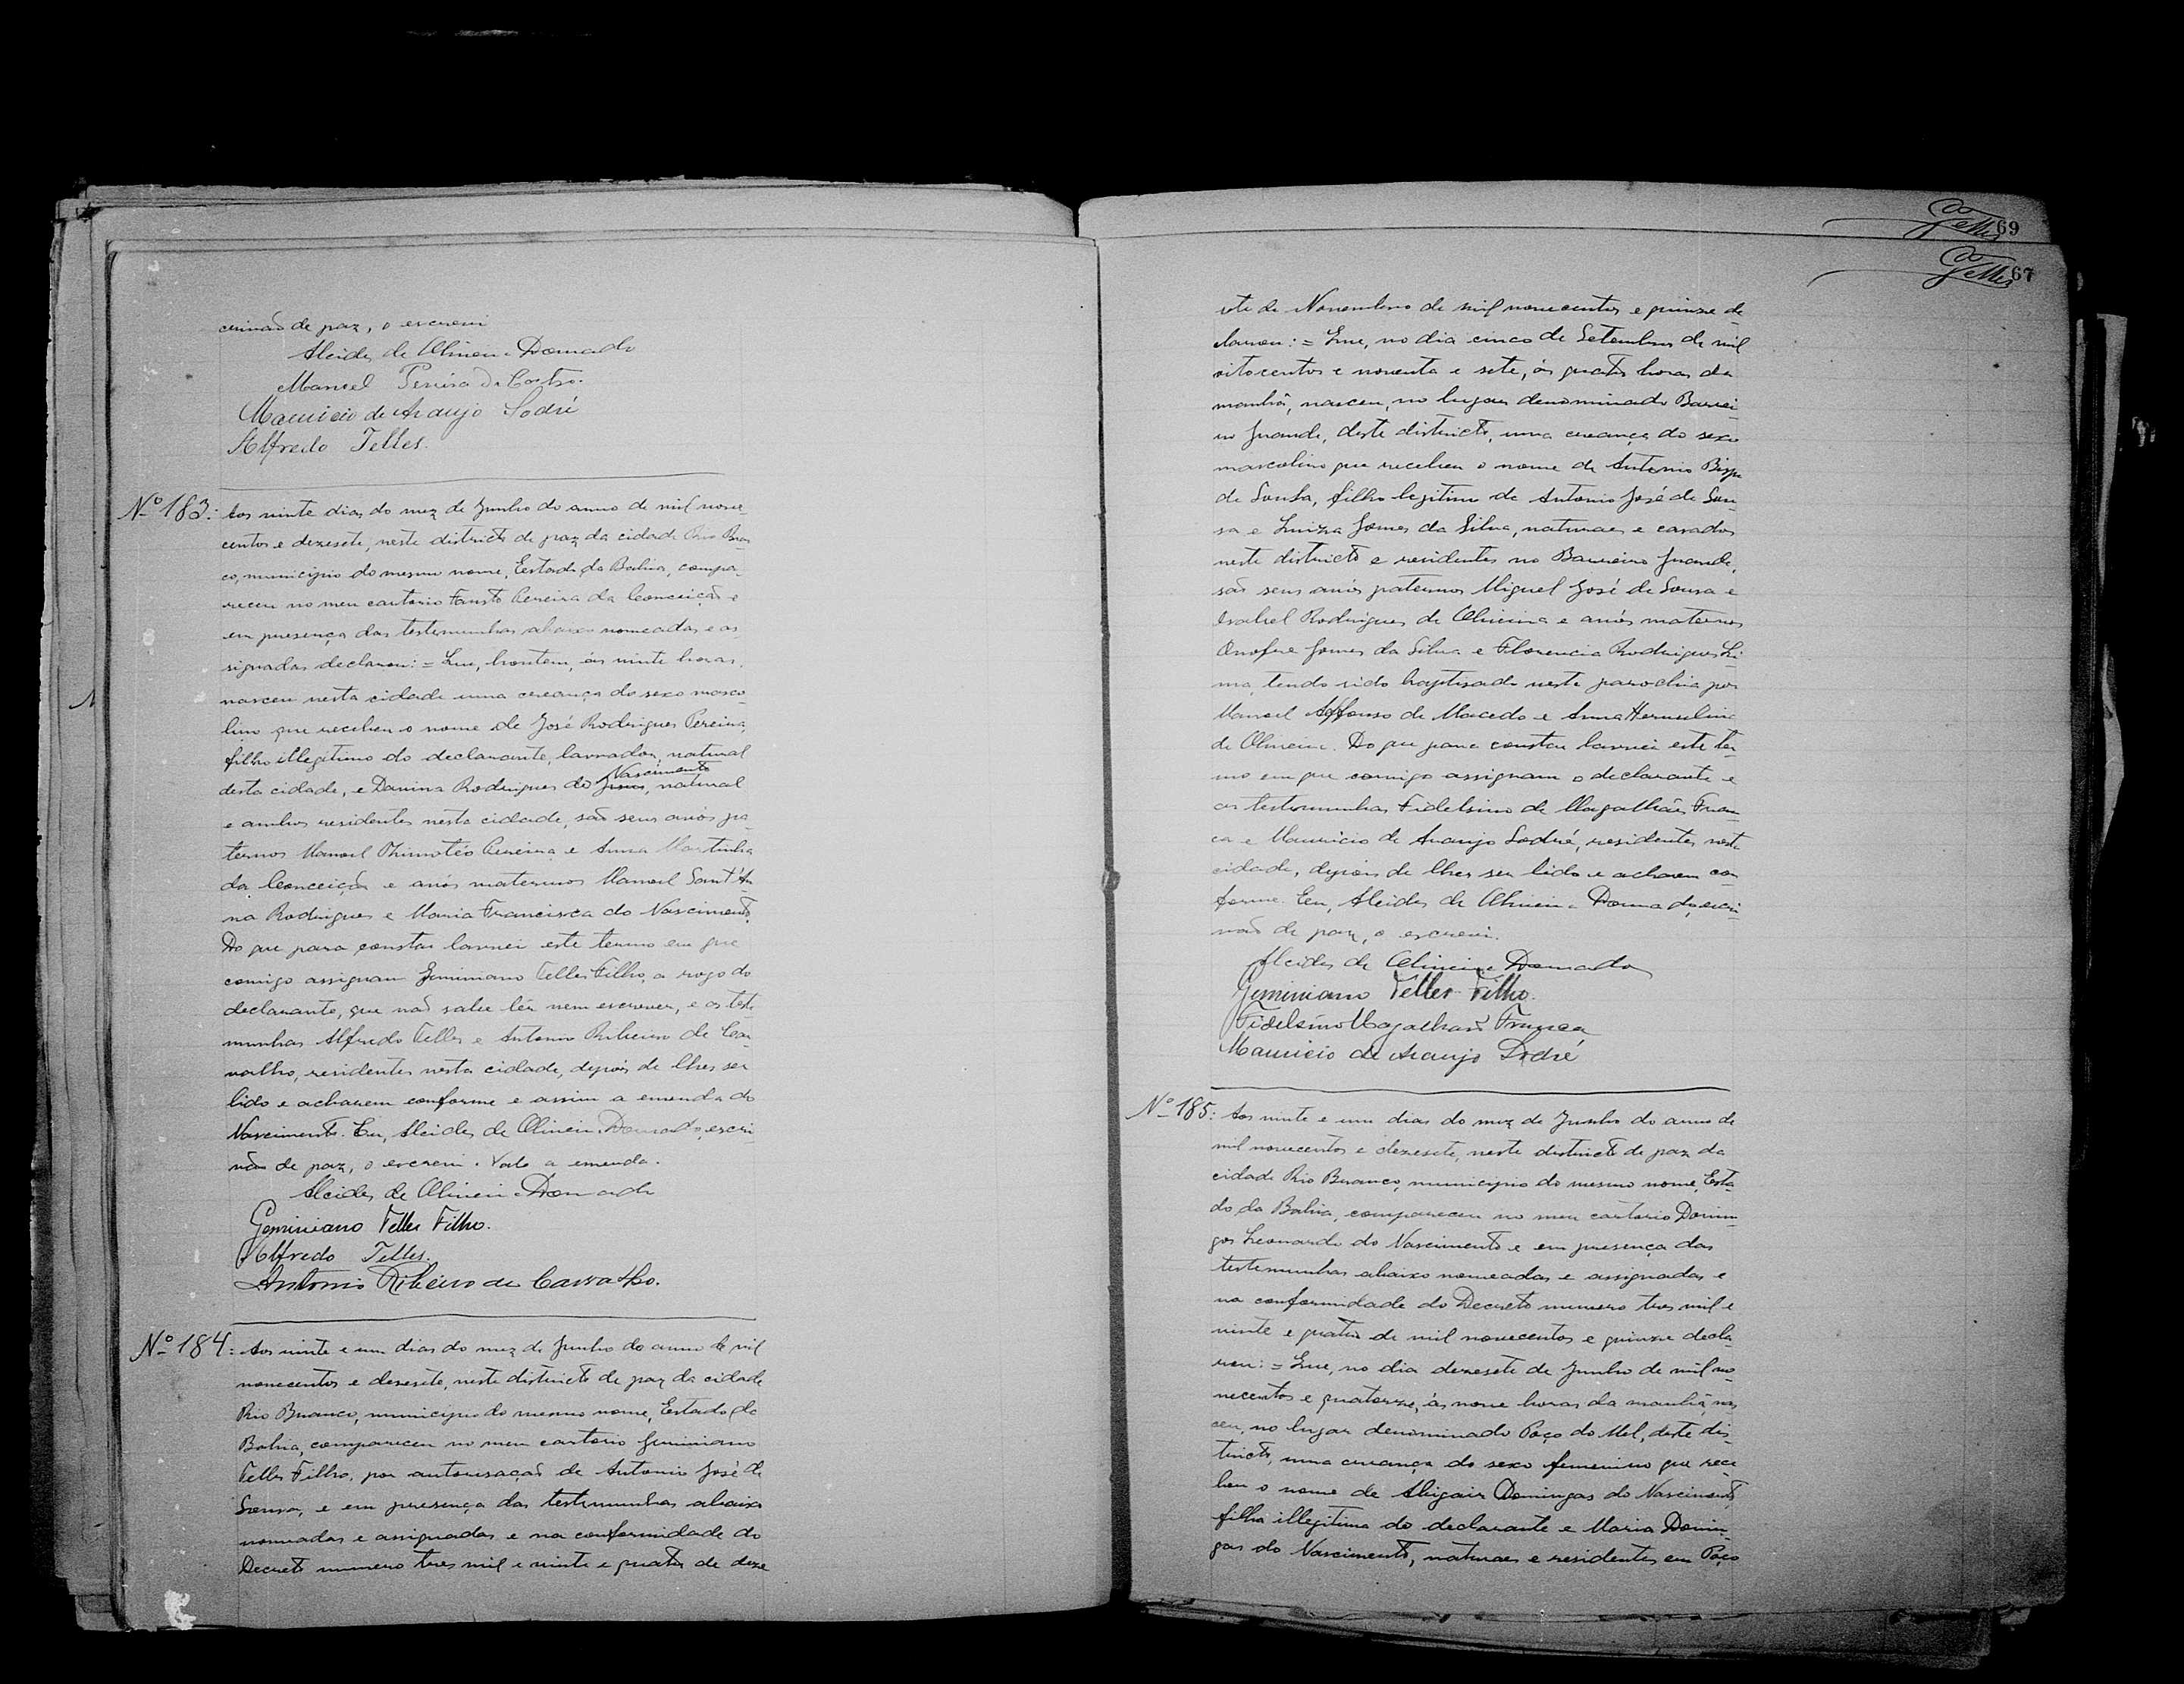 crivão de paz, o escrevi
Alcides de Oliveira Dourado
Manoel Pereira da Costa.
Mauricio de Araujo Sodré
Alfredo Telles.
Nº 183: Aos vinte dias do mez de Junho do anno de mil nove
centos e dezesete, neste districto de paz da cidade Rio Bran
co, municipio do mesmo nome, Estado da Bahia, compa-
receu no meu cartorio Fausto Pereira da Conceição e
em presença das testemunhas abaixo nomeadas e as
signadas declarou: = Que, hontem, ás vinte horas,
nasceu nesta cidade uma creança do sexo mascu
lino que recebeu o nome de José Rodrigues Pereira,
filho illegitimo do declarante, lavrador, natural
desta cidade, e Davina Rodrigues do Nascimento, natural
e ambos residentes nesta cidade, são seus avós pa
ternos Manoel Thimotéo Pereira e Anna Martinha
da Conceição e avós maternos Manoel Sant'An
na Rodrigues e Maria Francisca do Nascimento.
Do que para constar lavrei este termo em que
comigo assignam Geminiano Telles Filho, a rogo do
declarante, que não sabe ler nem escrever, e as teste
munhas Alfredo Telles e Antonio Ribeiro de Car
valho, residentes nesta cidade, depois de lhes ser
lido e acharem conforme e assim a emenda do
Nascimento. Eu, Alcides de Oliveira Dourado, escri
vão de paz, o escrevi. Vale a emenda.
Alcides de Oliveira Dourado
Geminiano Telles Filho.
Alfredo Telles.
Antonio Ribeiro de Carvalho.
Nº 184: Aos vinte e um dias do mez de Junho do anno de mil
novecentos e dezesete, neste districto de paz da cidade
Rio Branco, municipio do mesmo nome, Estado da
Bahia, compareceu no meu cartorio Geminiano
Telles Filho, por autorisação de Antonio José de
Sousa, e em presença das testemunhas abaixo
nomeadas e assignadas e na conformidade do
Decreto numero tres mil e vinte e quatro de deze
69
Telles
67
Telles
sete de Novembro de mil novecentos e quinze de
clarou: = Que, no dia cinco de Setembro de mil
oitocentos e noventa e sete, ás quatro horas da
manhã, nasceu, no lugar denominado Barrei
ro Grande, deste districto, uma creança do sexo
masculino que recebeu o nome de Antonio Bispo
de Sousa, filho legitimo de Antonio José de Sou
sa e Luiza Gomes da Silva, naturaes e casados
neste districto e residentes no Barreiro Grande,
são seus avós paternos Miguel José de Sousa e
Izabel Rodrigues de Oliveira e avós maternos
Onofre Gomes da Silva e Florencia Rodrigues Li
ma, tendo sido baptisado nesta parochia por
Manoel Affonso de Macedo e Anna Hermelina
de Oliveira. Do que para constar lavrei este ter
mo em que comigo assignam o declarante e
as testemunhas Fidelsino de Magalhães Fran
ca e Mauricio de Araujo Sodré, residentes nesta
cidade, depois de lhes ser lido e acharem con
forme. Eu, Alcides de Oliveira Dourado, escri
vão de paz, o escrevi.
Alcides de Oliveira Dourado
Geminiano Telles Filho.
Fidelsino Magalhães Franca
Mauricio de Araujo Sodré
Nº 185: Aos vinte e um dias do mez de Junho do anno de
mil novecentos e dezesete, neste districto de paz da
cidade Rio Branco, municipio do mesmo nome, Esta-
do da Bahia, compareceu no meu cartorio Domin
gos Leonardo do Nascimento e em presença das
testemunhas abaixo nomeadas e assignadas e
na conformidade do Decreto numero tres mil e
vinte e quatro de mil novecentos e quinze decla
rou: = Que, no dia dezesete de Junho de mil no-
vecentos e quatorze, ás nove horas da manhã, nas
ceu, no lugar denominado Poço do Mel, deste dis-
tricto, uma creança do sexo femenino que rece
beu o nome de Abigair Domingas do Nascimento,
filha illegitima do declarante e Maria Domin-
gas do Nascimento, naturaes e residentes em Poço